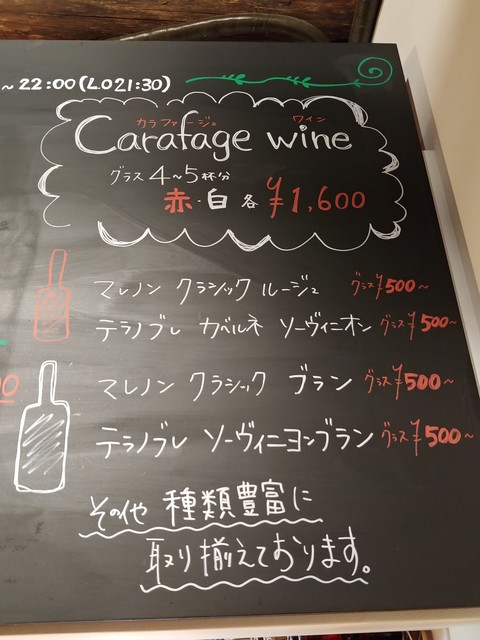 ~22:00(LO21:30)
カラファージュ ワイン
Carafage wine
グラス4~5杯分
赤・白 各 ¥1,600
マレノン クラシック ルージュ グラス¥500~
テラノブレ カベルネ ソーヴィニオン グラス¥500~
マレノン クラシック ブラン グラス¥500~
テラノブレ ソーヴィニヨンブラン グラス¥500~
その他 種類豊富に
取り揃えております。